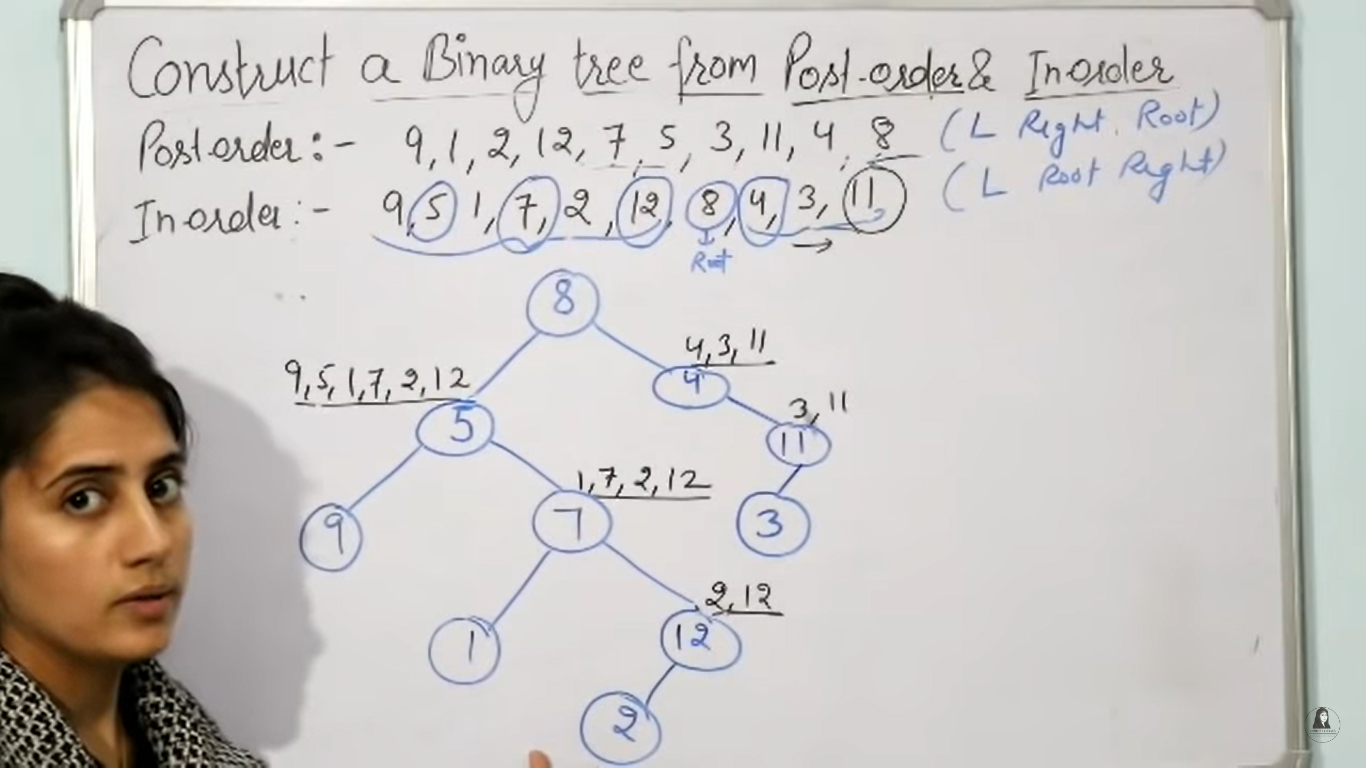 Construct a Binary tree from Post-order & Inorder
Postorder:- 9, 1, 2, 12, 7, 5, 3, 11, 4, 8 (L Right Root)
Inorder:- 9, 5, 1, 7, 2, 12, 8, 4, 3, 11 (L Root Right)
Root
8
4, 3, 11
9, 5, 1, 7, 2, 12
4
3, 11
5
11
1, 7, 2, 12
9
7
3
2, 12
1
12
2